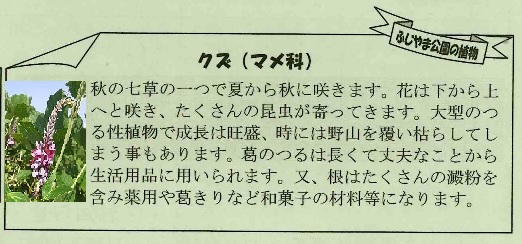 ふじやま公園の植物
クズ（マメ科）
秋の七草の一つで夏から秋に咲きます。花は下から上
へと咲き、たくさんの昆虫が寄ってきます。大型のつ
る性植物で成長は旺盛、時には野山を覆い枯らしてし
まう事もあります。葛のつるは長くて丈夫なことから
生活用品に用いられます。又、根はたくさんの澱粉を
含み薬用や葛きりなど和菓子の材料等になります。